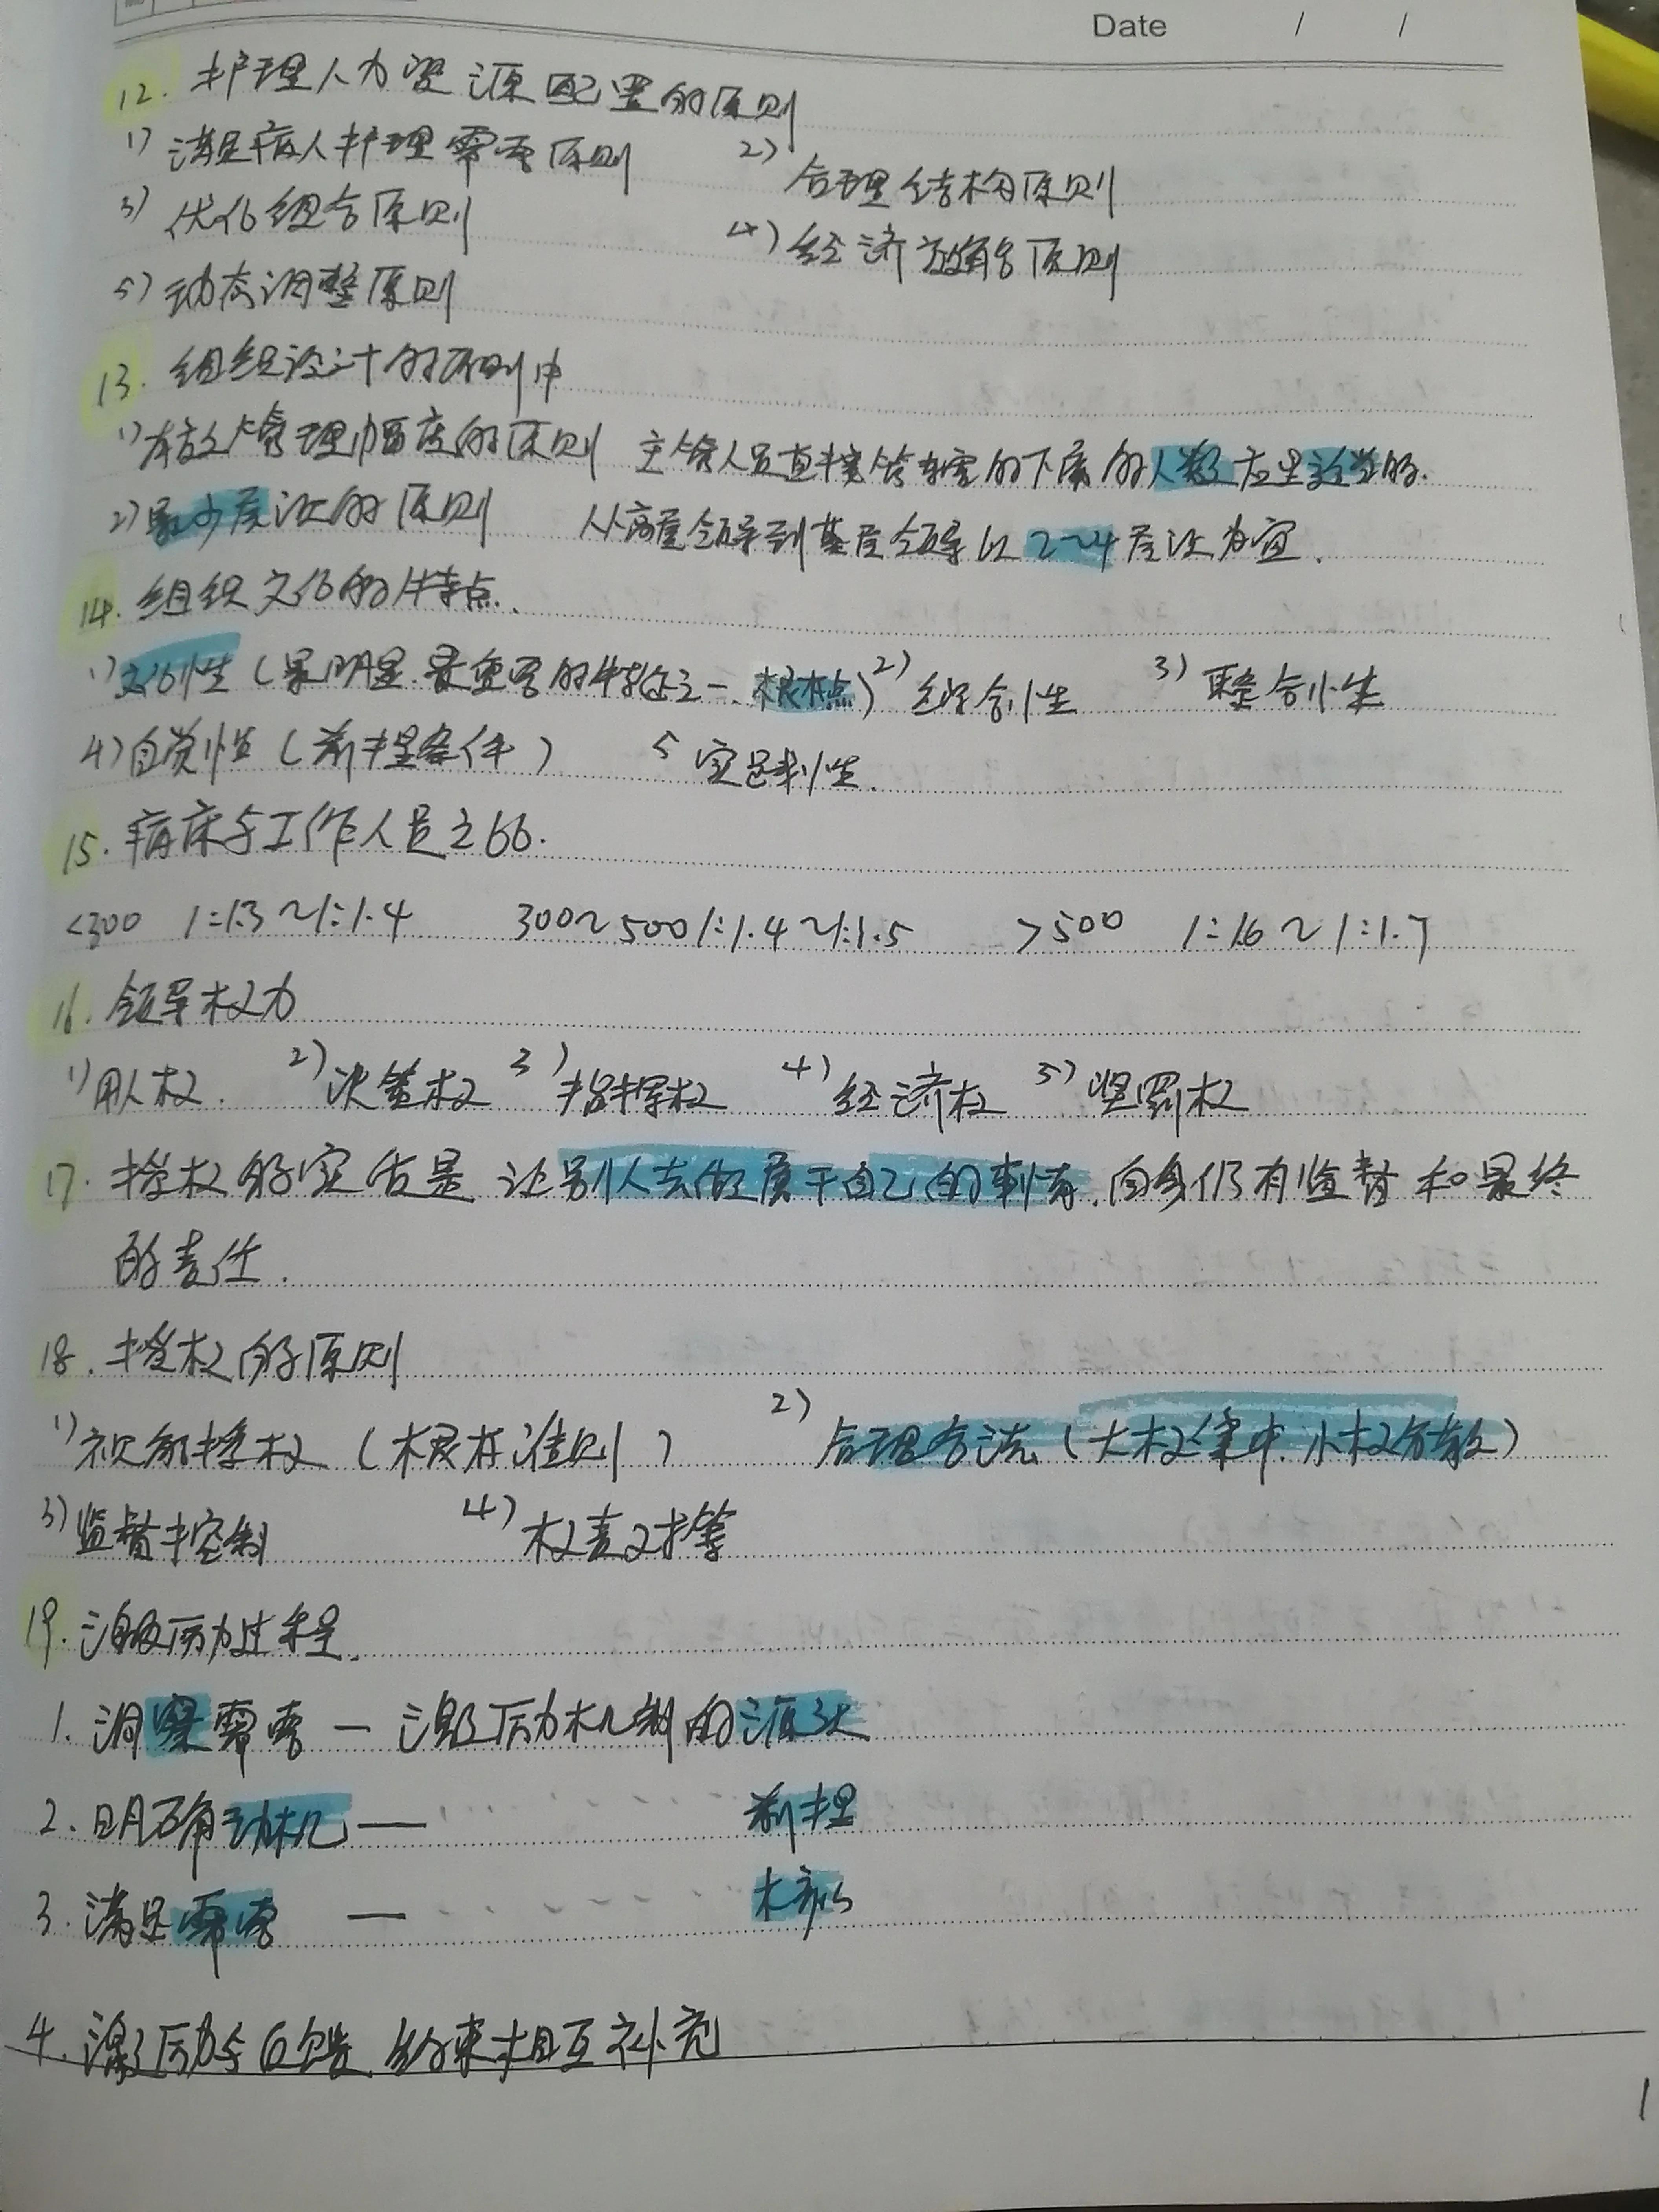 Date / /
12. 护理人力资源配置的原则
1) 满足病人护理需要原则 2) 合理结构原则
3) 优化组合原则 4) 经济效能原则
5) 动态调整原则
13. 组织设计的原则中
1) 有效管理幅度的原则 主管人员直接管辖的下属的人数应是适当的.
2) 最少层次的原则 从高层领导到基层领导以2~4层次为宜.
14. 组织文化的特点.
1) 文化性(最明显.最重要的特征之一.根本点) 2) 综合性 3) 整合性
4) 自觉性(前提条件) 5 实践性.
15. 病床与工作人员之比.
<300 1:1.3~1:1.4 300~500 1:1.4~1:1.5 >500 1:1.6~1:1.7
16. 领导权力
1) 用人权. 2) 决策权 3) 指挥权 4) 经济权 5) 奖罚权
17. 授权的实质是 让别人去做原属于自己的事情.自身仍有监督和最终
的责任.
18. 授权的原则
1) 视能授权(根本准则) 2) 合理合法(大权集中.小权分散)
3) 监督控制 4) 权责对等
19. 激励过程.
1. 洞察需要 — 激励机制的源头
2. 明确动机 — 前提
3. 满足需要 — 核心
4. 激励与反馈.约束相互补充
1